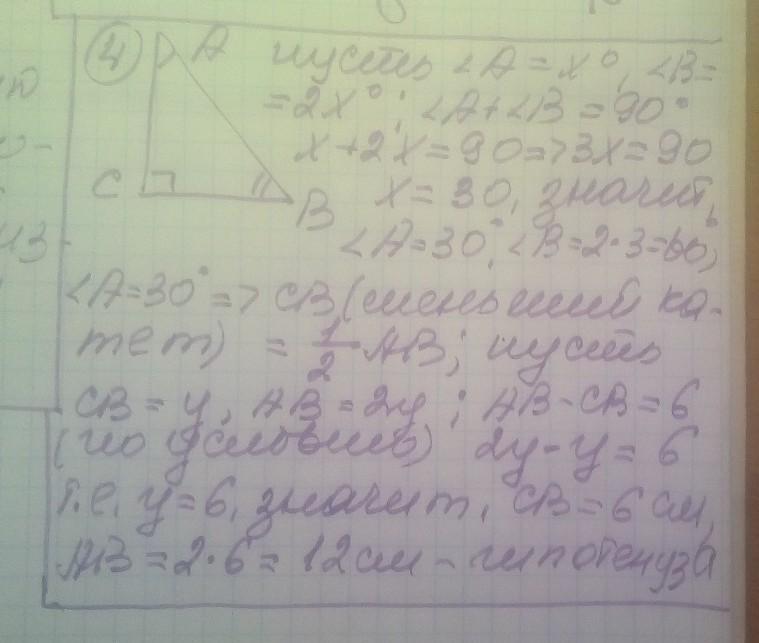 4 A пусть ∠A = x°, ∠B =
= 2x°; ∠A+∠B = 90°
x + 2x = 90 => 3x = 90
C B x = 30, значит,
∠A=30°, ∠B=2·3=60°,
∠A=30° => CB (меньший ка-
тет) = 1/2 AB; пусть
CB = y, AB = 2y; AB - CB = 6
(по условию) 2y - y = 6
т.е. y = 6, значит, CB = 6 см,
AB = 2·6 = 12 см - гипотенуза